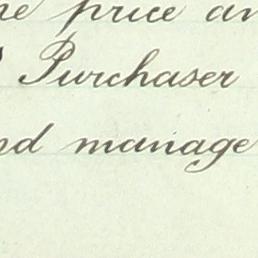 he price an
Purchaser
nd manage